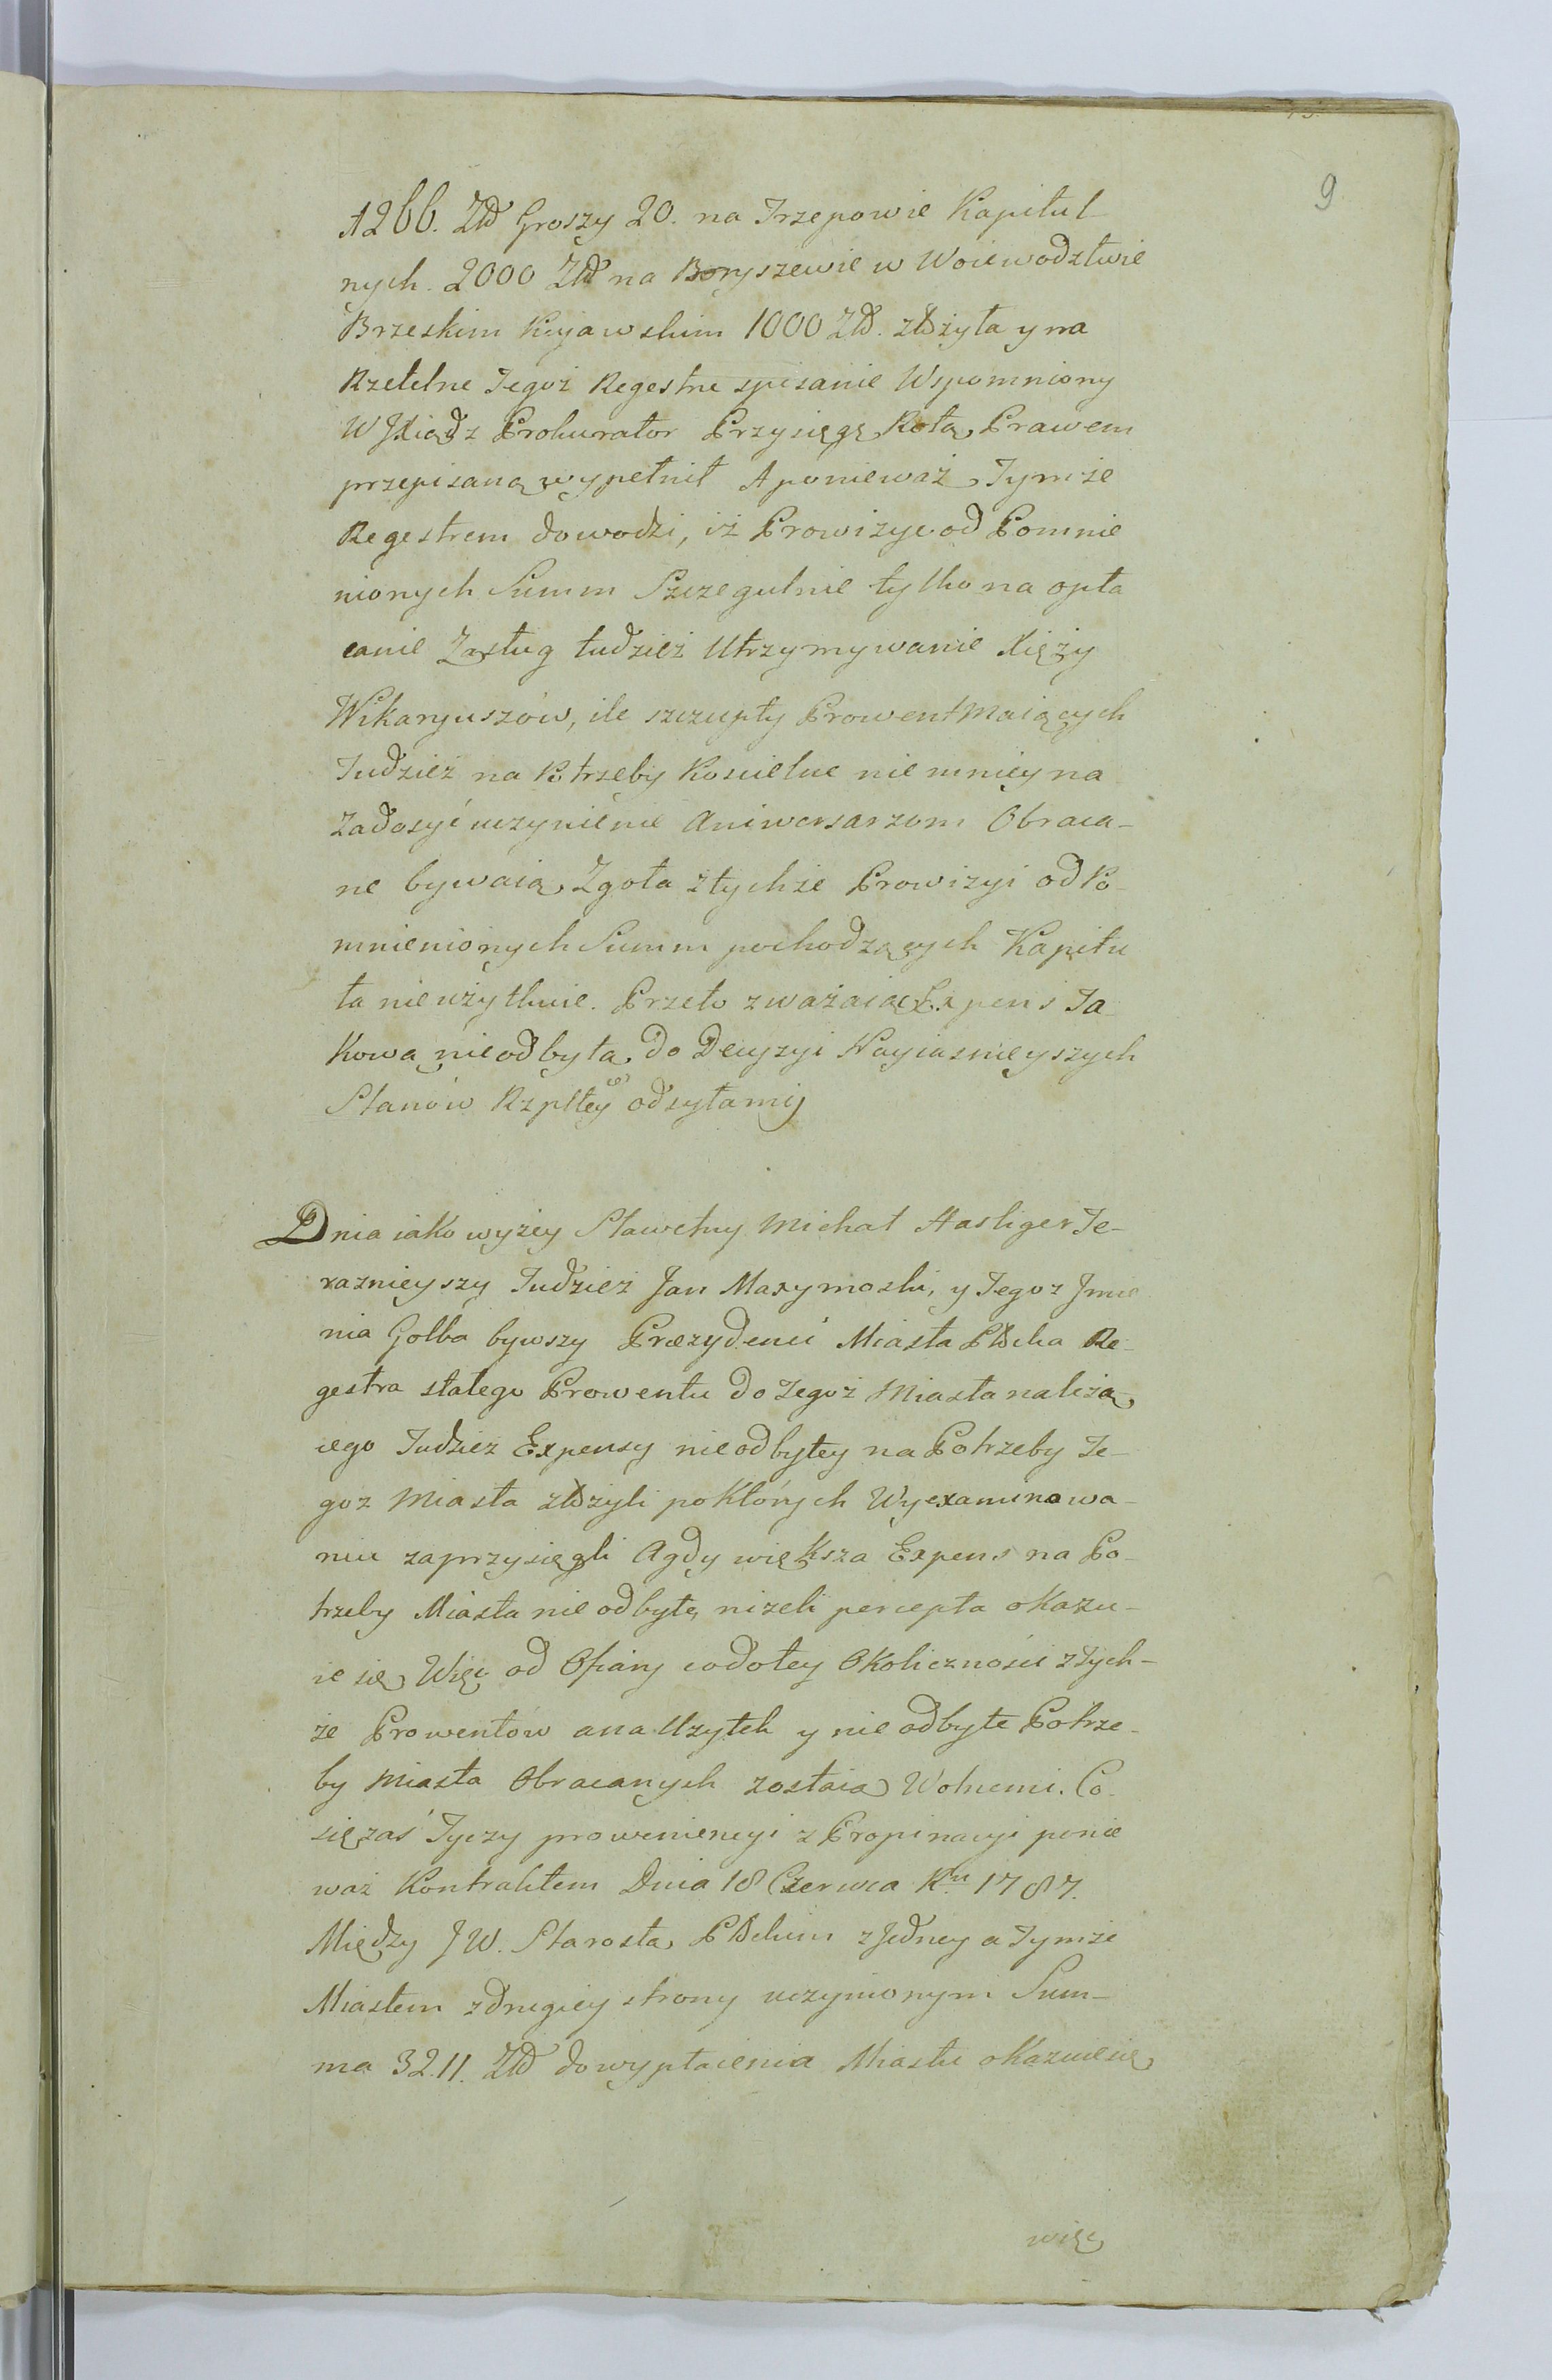 9
1266. Zł Groszy 20. na Trzepowie Kapitul
nych. 2000 Zł na Boryszewie w Woiewodztwie
Brzeskim Kujawskim 1000 Zł. złożyła y na
Rzetelne Tegoż Regestru spisanie Wspomniony
WJXiądz Prokurator Przysięgę Rotą Prawem
przepisaną wypełnił A ponieważ Tymże
Regestrem dowodzi, iż Prowizye od Pomnie
nionych Summ Szczegulnie tylko na opła
canie Zasług tudzież Utrzymywanie Xięży
Wikaryuszów, ile szczupły Prowent Maiących
Tudzież na Potrzeby Koscielne nie mniey na
Zadosyć uczynienie Aniwersarzom Obraca-
ne bywaią, Zgoła z tychże Prowizyi od Po-
mnienionych Summ pochodzących Kapitu
ła nie użytkuie. Przeto zważaiąc Expens Ta
Kową nieodbytą, do Decyzyi Nayiasnieyszych
Stanów Rzpltey odsyłamy

Dnia iako wyżey Sławetny Michał Hasliger Te-
raznieyszy Tudzież Jan Maxymoski, y Tegoz Jmie
nia Golba bywszy Prezydenci Miasta Płocka Re-
gestra stałego Prowentu do Tegoż Miasta należą
cego Tudzież Expensy nieodbytey na Potrzeby Te-
goz Miasta złożyli po Których Wyexaminowa-
niu zaprzysięgli A gdy większa Expens na Po-
trzeby Miasta nie odbyte, nizeli percepta okazu-
ie się, Więc od Ofiary co do tey Okoliczności z tych-
że Prowentów a na Uzytek y nie odbyte Potrze-
by Miasta Obracanych zostaią Wolnemi. Co
się zaś Tyczy proweniencyi z Propinacyi ponie
waż Kontraktem Dnia 18 Czerwca R.ku 1787.
Między JW. Starostą Płockim z Jedney a Tymże
Miastem z drugiey strony uczynionym Sum-
ma 3211. Zł do wypłacenia Miastu okazuie się,
więc